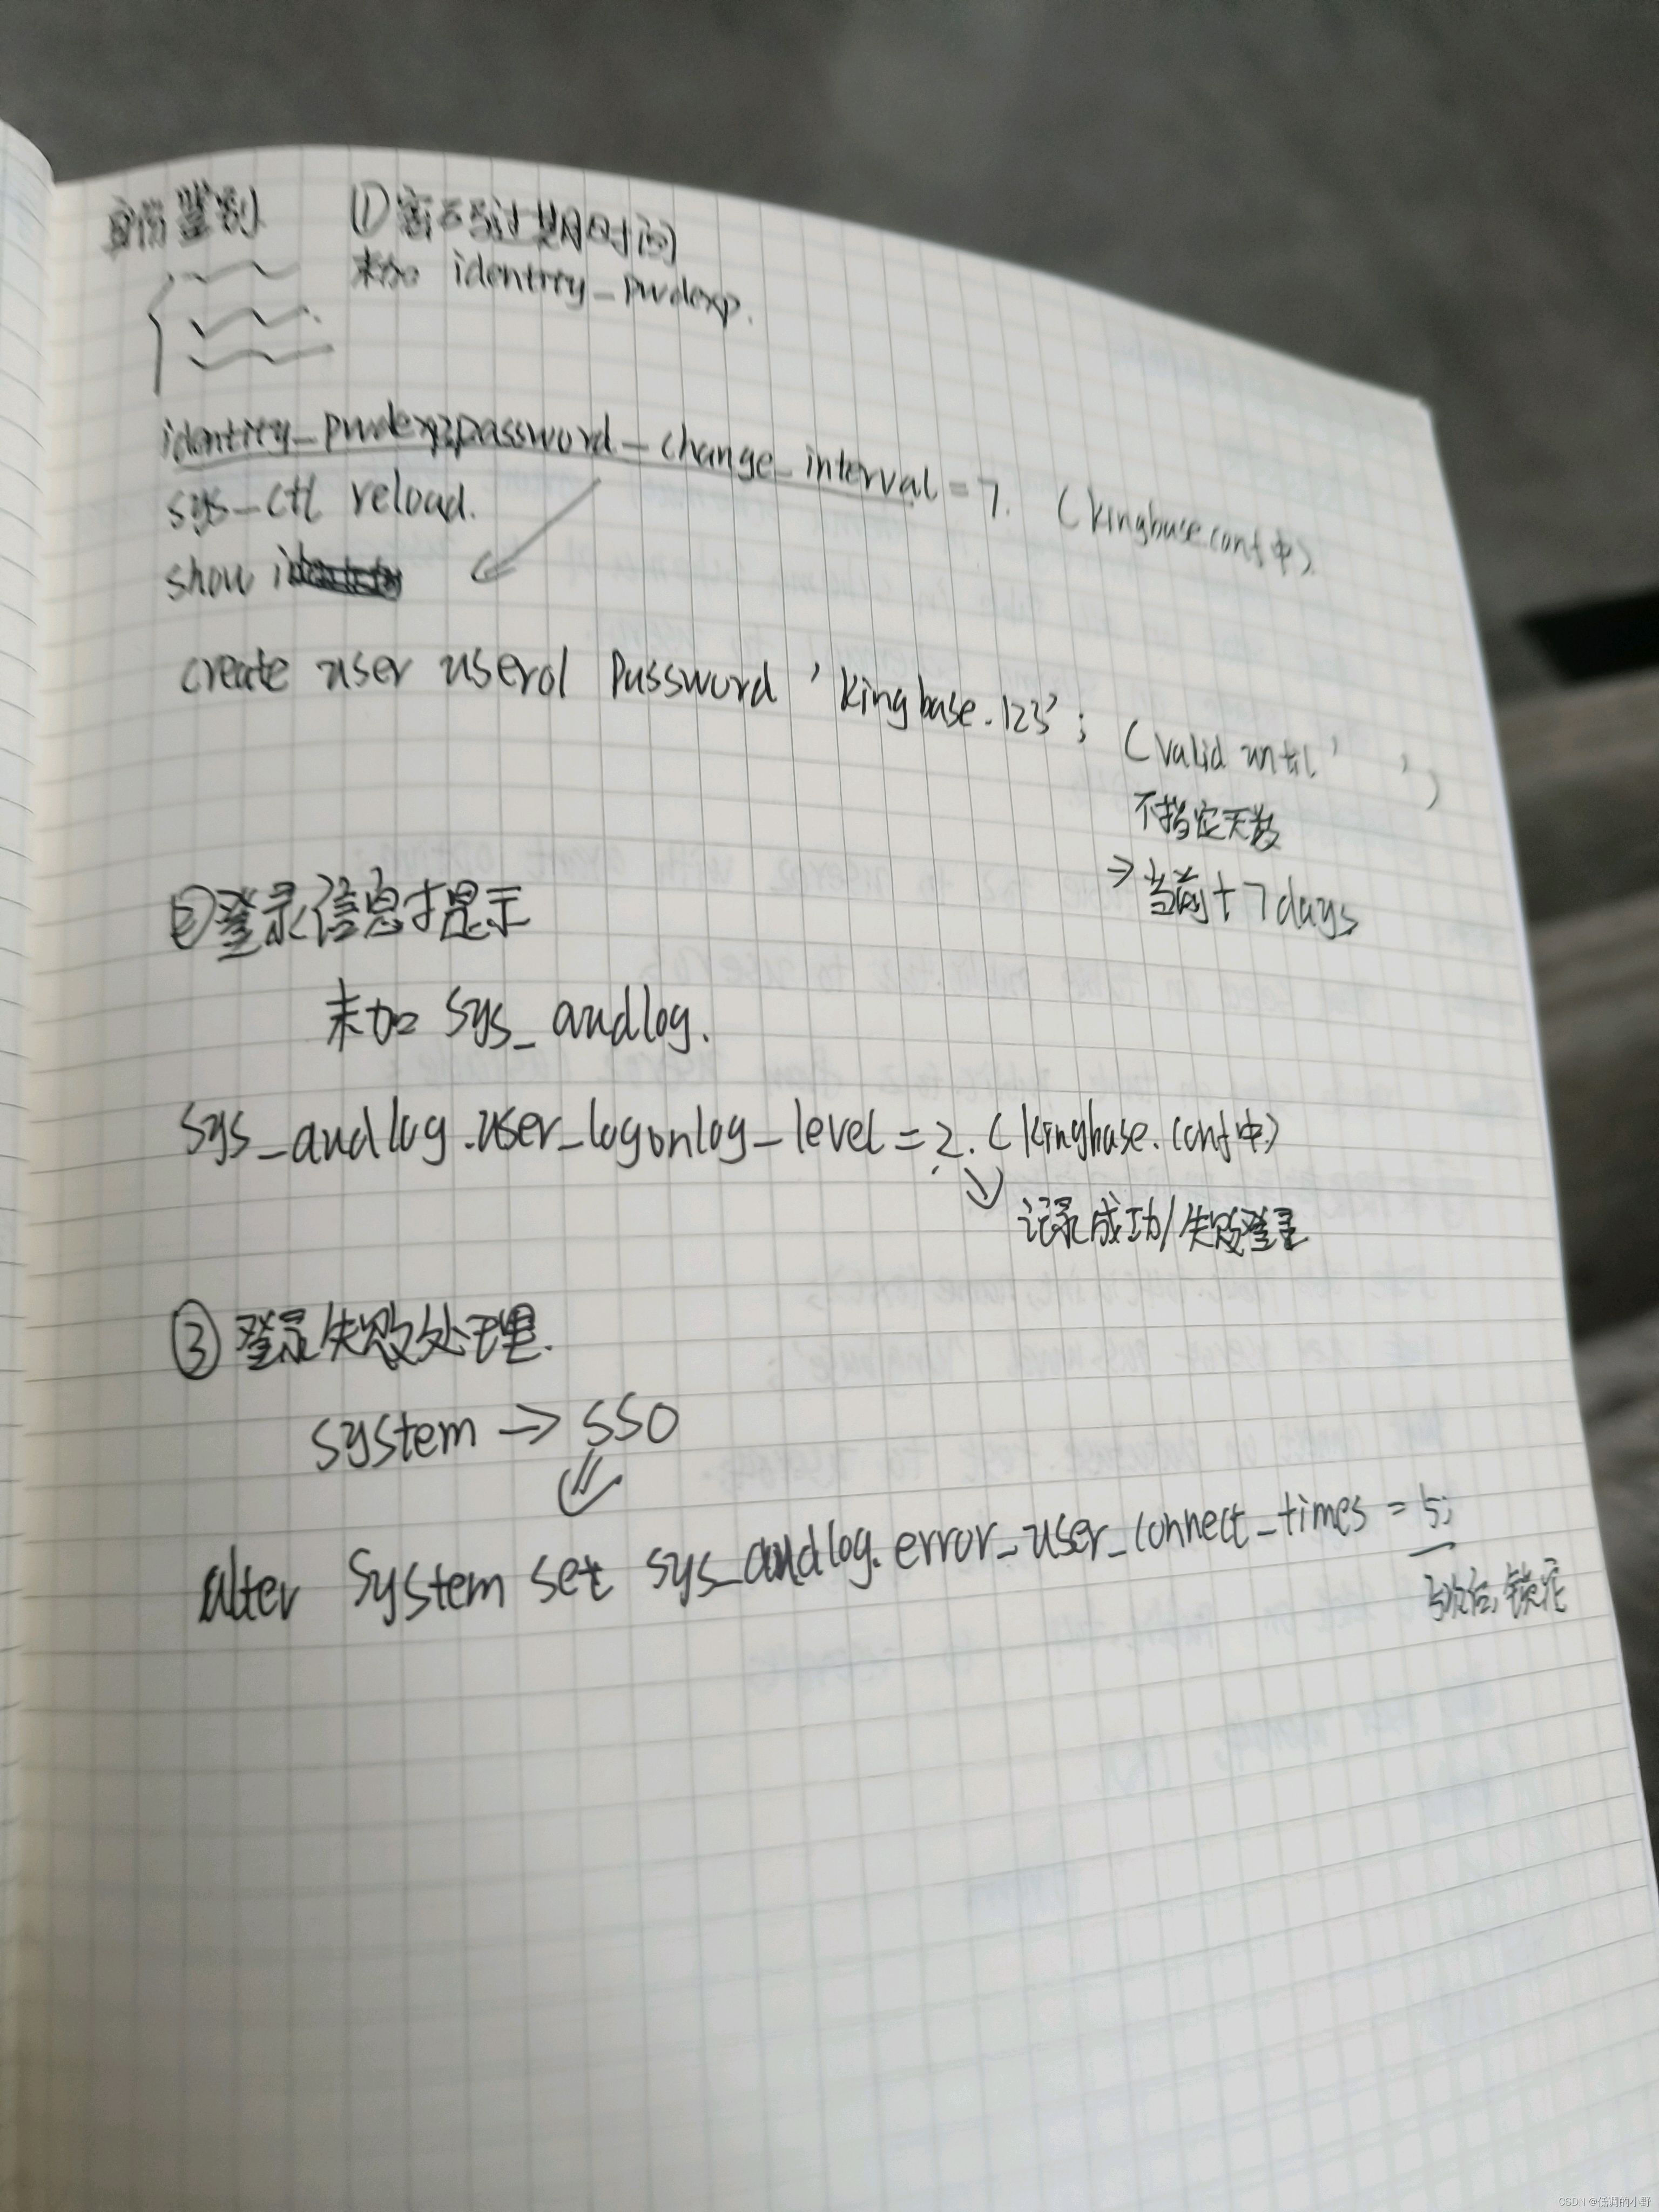 身份鉴别 ①密码过期时间
未加 identity_pwdexp.
identity_pwdexp.password_change_interval = 7. (kingbase.conf中).
sys_ctl reload.
show
create user user01 Password 'kingbase.123'; (valid until ' ')
不指定天数
→ 当前+7days
②登录信息提示
未加 sys_audlog.
sys_audlog.user_logonlog_level = 2. (kingbase.conf中)
记录成功/失败登录
③登录失败处理.
system → SSO
alter system set sys_audlog.error_user_connect_times = 5;
5次后,锁定
CSDN @低调的小野